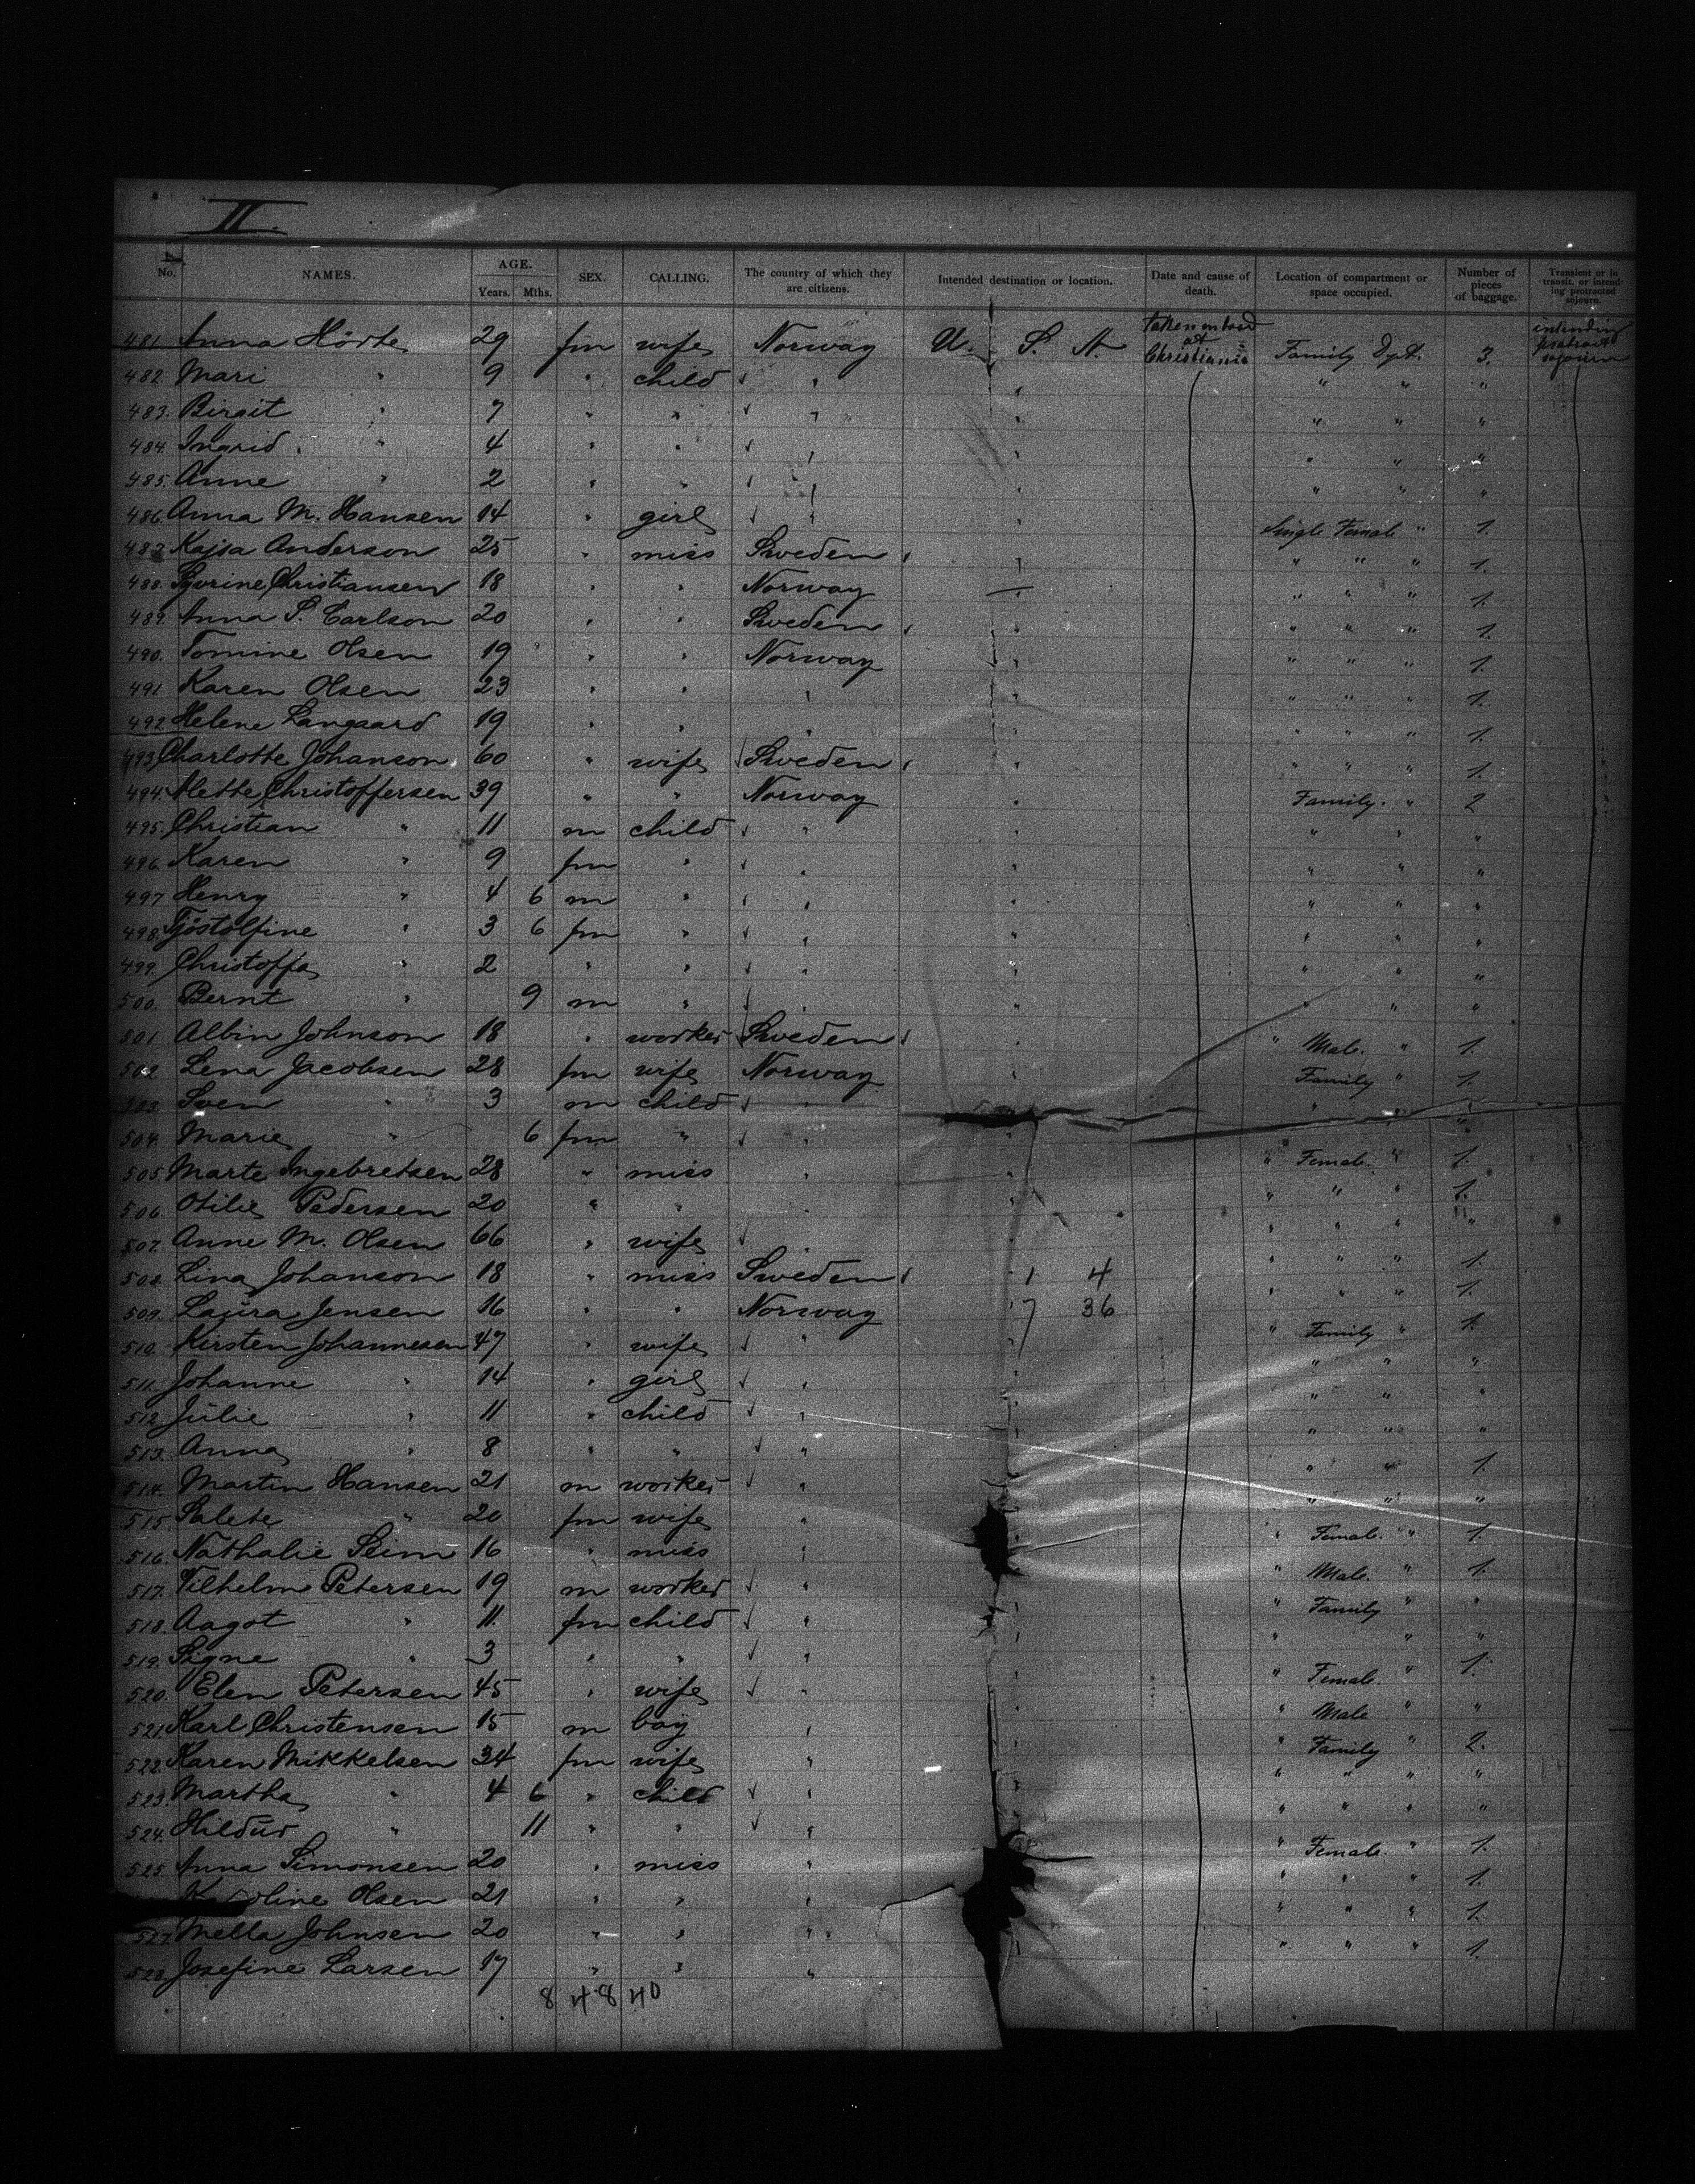 II.
No. NAMES. AGE. Years. Mths. SEX. CALLING. The country of which they are citizens. Intended destination or location. Date and cause of death. Location of compartment or space occupied. Number of pieces of baggage. Transient or in transit, or intending protracted sojourn.
481 Anna Hörte 29 fm wife Norway U. S. A. taken on board at Christiania Family Dpt. 3. intending protract sojourn
482 Mari " 9 " child " " " " "
483. Birgit " 7 " " " " " " "
484. Ingrid " 4 " " " " " " "
485. Anne " 2 " " " " " " "
486. Anna M. Hansen 14 " girl " " Single Female " 1.
487. Kajsa Anderson 25 " miss Sweden " " " " 1.
488. Christiansen 18 " " Norway " " " " 1.
489. Anna S. Carlson 20 " " Sweden " " " " 1.
490. Tomine Olsen 19 " " Norway " " " " 1.
491 Karen Olsen 23 " " " " " " " 1.
492 Helene Langaard 19 " " " " " " " 1.
493 Charlotte Johanson 60 " wife Sweden " " " " 1.
494. Mette Christoffersen 39 " " Norway " Family. " 2
495. Christian " 11 m child " " " " "
496. Karen " 9 fm " " " " " "
497 Henry " 4 6 m " " " " " "
498. Tjöstolfine " 3 6 fm " " " " " "
499. Christoffa " 2 " " " " " " "
500. Bernt " 9 m " " " " " "
501 Albin Johnson 18 " worker Sweden " " Male. " 1.
502 Lena Jacobsen 28 fm wife Norway " Family " 1.
503. Sven " 3 m child " " "
504. Marie " 6 fm " " " "
505. Marte Ingebretsen 28 " miss " " " Female. " 1.
506. Otilie Pedersen 20 " " " " " " " 1.
507. Anne M. Olsen 66 " wife " " " " " "
508. Lina Johanson 18 " miss Sweden 1 4 " " " 1.
509. Laura Jensen 16 " " Norway 7 36 " " " 1.
510. Kirsten Johannesen 47 " wife " " " Family " 1.
511. Johanne " 14 " girl " " " " "
512. Julie " 11 " child " " " " "
513. Anna " 8 " " " " " " "
514. Martin Hansen 21 m worker " " " " 1.
515. Salete " 20 fm wife " " " " "
516. Nathalie Seim 16 " miss " " " Female. " 1.
517. Vilhelm Petersen 19 m worker " " " Male. " 1.
518. Aagot " 11. fm child " " Family " "
519. Signe " 3 " " " " " " "
520. Elen Petersen 45 " wife " " Female. " 1.
521. Karl Christensen 15 m boy " " Male " "
522. Karen Mikkelsen 34 fm wife " " Family " 2.
523. Martha " 4 6 " child " " " " " "
524. Hildur " 11 " " " " " " "
525. Anna Simonsen 20 " miss " " Female. " 1.
Karoline Olsen 21 " " " " " " 1.
527. Mella Johnsen 20 " " " " " " 1.
528. Josefine Larsen 17 " " " " " " 1.
8 48 40